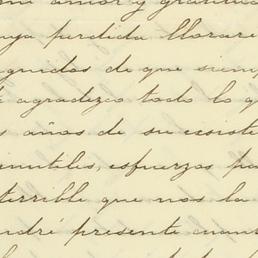 mi amor y gratitud
uya perdida llorare
eguidos de que siemp
é agradezco todo lo q
s años de su existe
inutiles esfuerzos pa
terrible que nos la
endré presente cuan